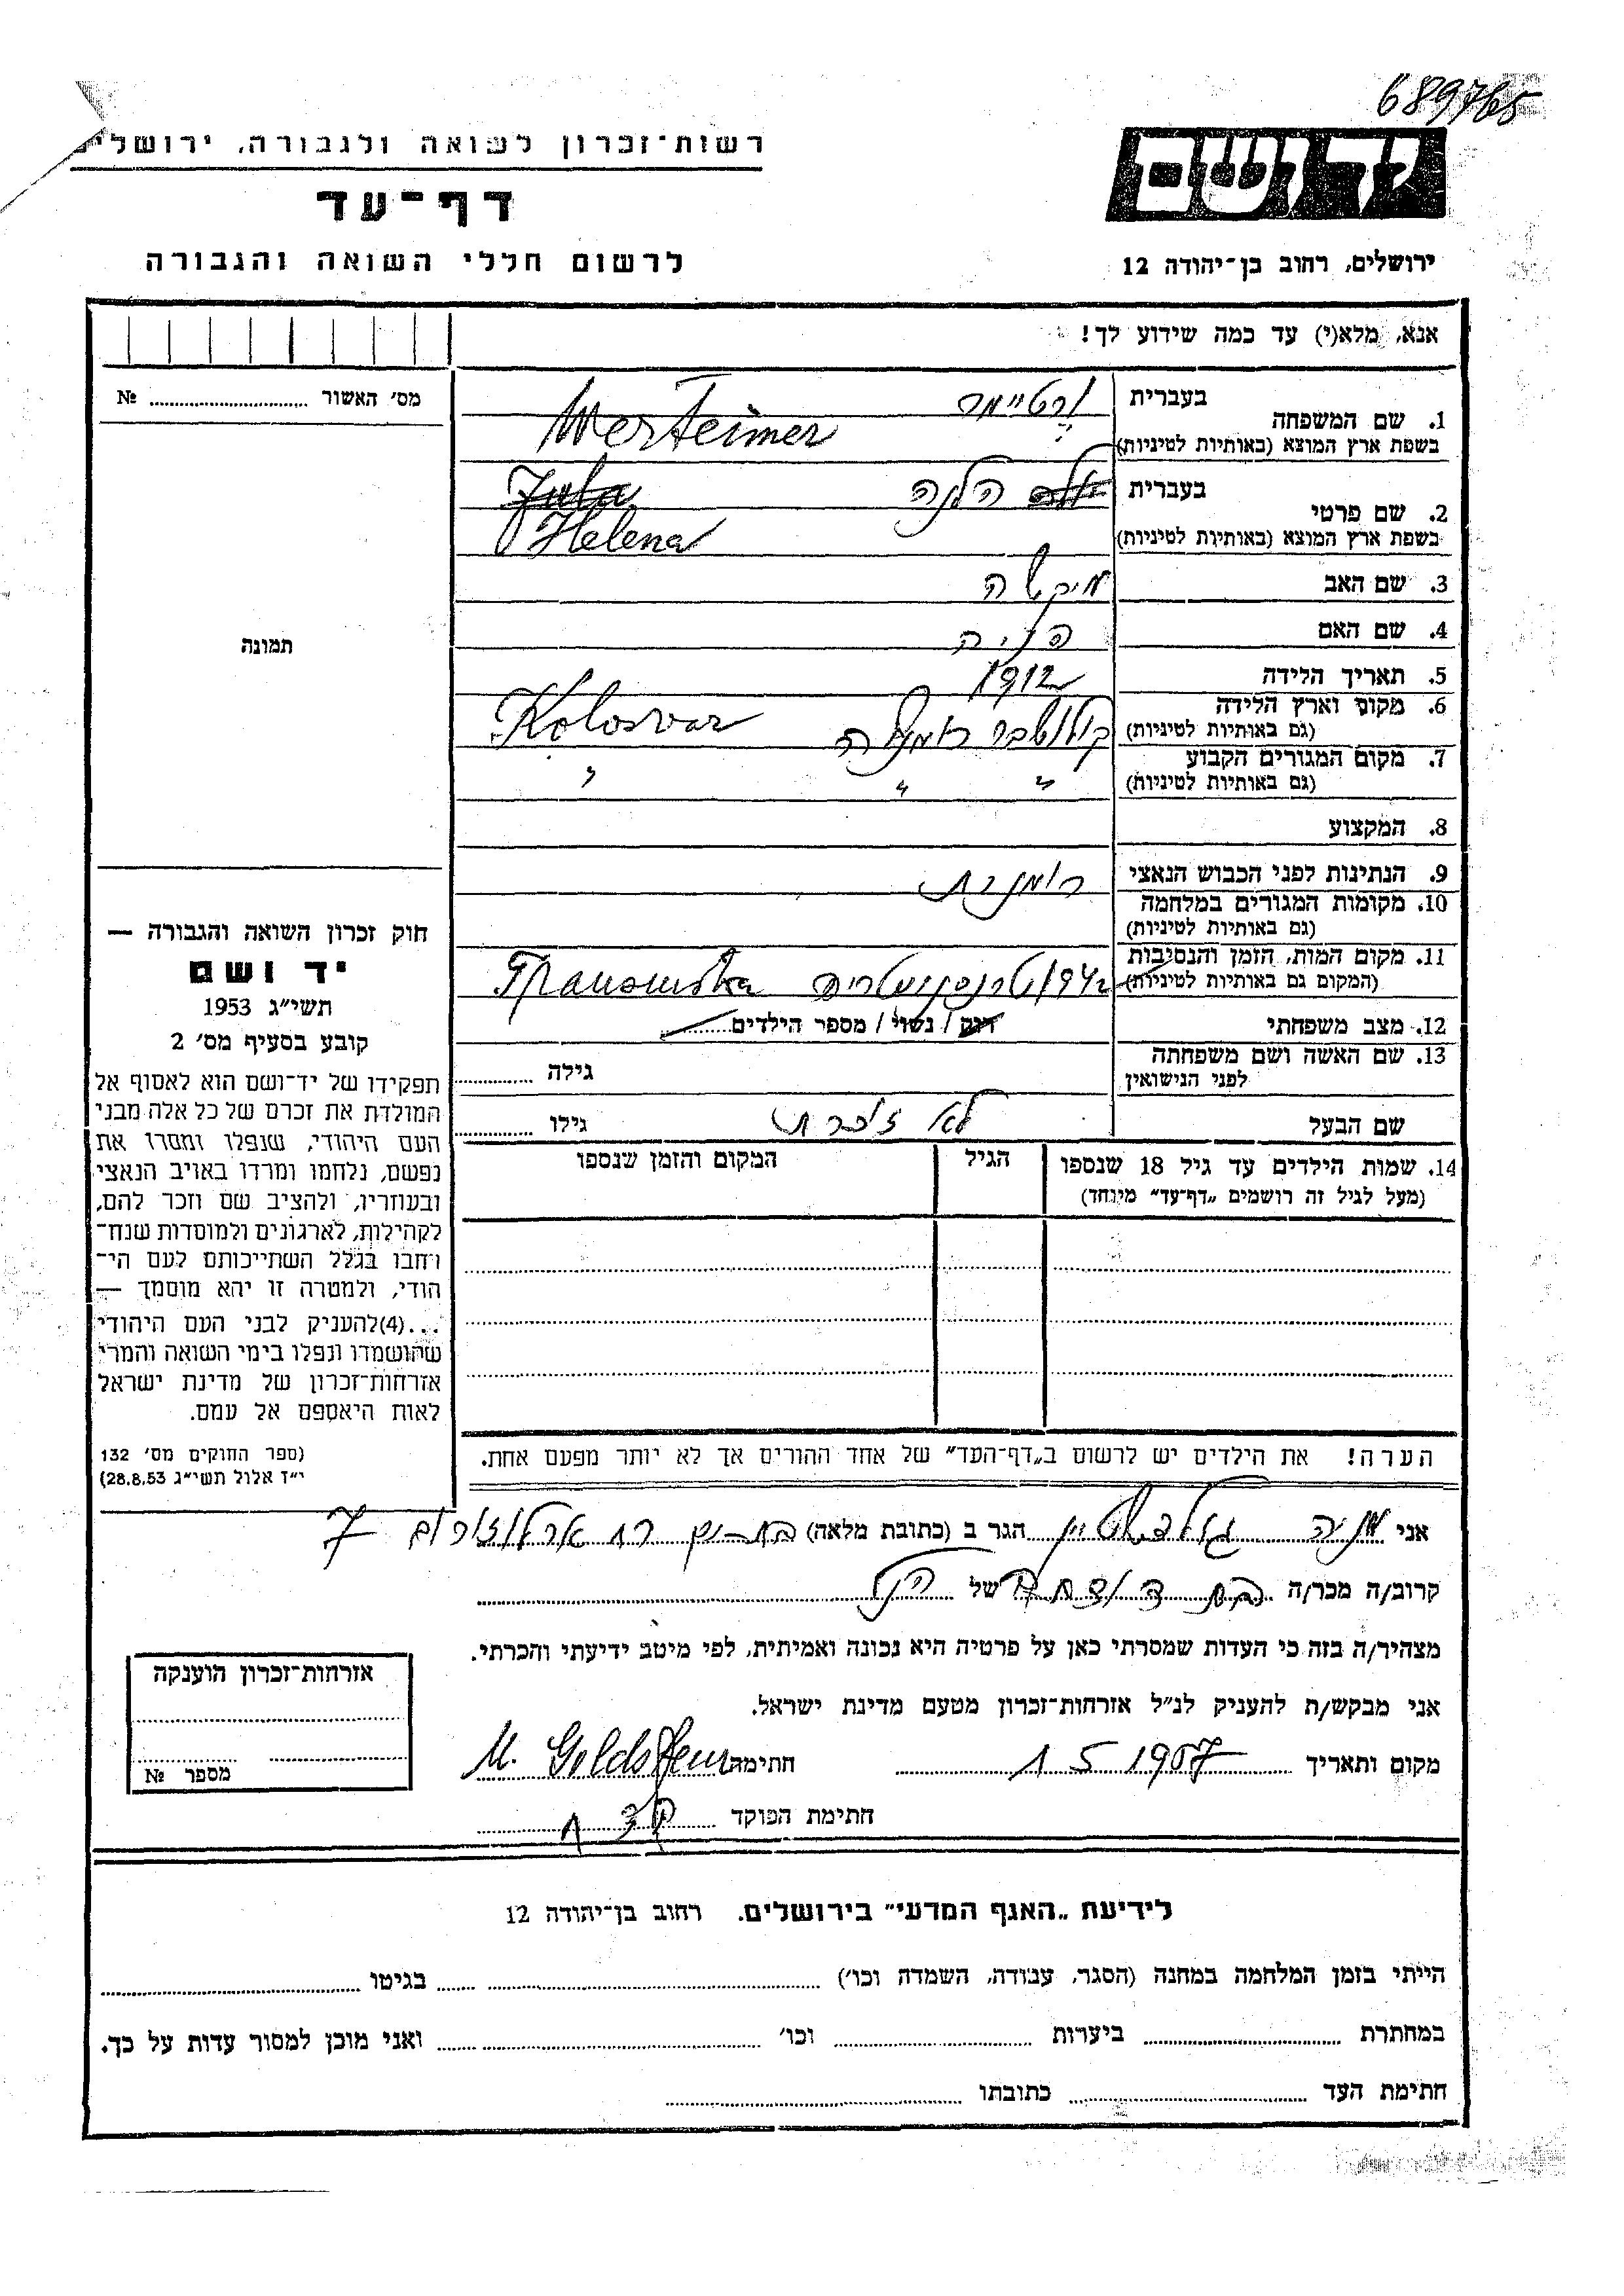 689765
רשות־זכרון לשואה ולגבורה, ירושלים
יד ושם
דף־עד
ירושלים, רחוב בן־יהודה 12
לרשום חללי השואה והגבורה
אנא, מלא(י) עד כמה שידוע לך!
מס' האשור № 
1. שם המשפחה
בעברית ורטיימר
בשפת ארץ המוצא (באותיות לטיניות) Werteimer
2. שם פרטי
בעברית הלנה
בשפת ארץ המוצא (באותיות לטיניות) Jula Helena
3. שם האב
4. שם האם
5. תאריך הלידה 1912
6. מקום וארץ הלידה
(גם באותיות לטיניות) רומניה Kolosvar
7. מקום המגורים הקבוע
(גם באותיות לטיניות) " " "
8. המקצוע
9. הנתינות לפני הכבוש הנאצי רומנית
10. מקומות המגורים במלחמה
(גם באותיות לטיניות)
11. מקום המות, הזמן והנסיבות
(המקום גם באותיות לטיניות)
12. מצב משפחתי רוק / נשוי / מספר הילדים
13. שם האשה ושם משפחתה
לפני הנישואין גילה
שם הבעל לא זוכרת גילו
14. שמות הילדים עד גיל 18 שנספו
(מעל לגיל זה רושמים „דף־עד" מיוחד)
הגיל
המקום והזמן שנספו
הערה! את הילדים יש לרשום ב„דף־העד" של אחד ההורים אך לא יותר מפעם אחת.
תמונה
חוק זכרון השואה והגבורה —
יד ושם
תשי"ג 1953
קובע בסעיף מס' 2
תפקידו של יד־ושם הוא לאסוף אל
המולדת את זכרם של כל אלה מבני
העם היהודי, שנפלו ומסרו את
נפשם, נלחמו ומרדו באויב הנאצי
ובעוזריו, ולהציב שם וזכר להם,
לקהילות, לארגונים ולמוסדות שנח־
רחבו בגלל השתייכותם לעם הי־
הודי, ולמטרה זו יהא מוסמך —
...(4)להעניק לבני העם היהודי
שהושמדו ונפלו בימי השואה והמרי
אזרחות־זכרון של מדינת ישראל
לאות היאספם אל עמם.
(ספר החוקים מס' 132
י"ז אלול תשי"ג 28.8.53)
אני מניה גולדשטיין הגר ב (כתובת מלאה) בת-ים רח ארלוזורוב 7
קרוב/ה מכר/ה בת דודה של הנ"ל
מצהיר/ה בזה כי העדות שמסרתי כאן על פרטיה היא נכונה ואמיתית, לפי מיטב ידיעתי והכרתי.
אני מבקש/ת להעניק לנ"ל אזרחות־זכרון מטעם מדינת ישראל.
מקום ותאריך 1 5 1957 חתימה M. Goldstein
חתימת הפוקד
אזרחות־זכרון הוענקה
מספר №
לידיעת „האגף המדעי" בירושלים. רחוב בן־יהודה 12
הייתי בזמן המלחמה במחנה (הסגר, עבודה, השמדה וכו') בגיטו
במחתרת ביערות וכו' ואני מוכן למסור עדות על כך.
חתימת העד כתובתו